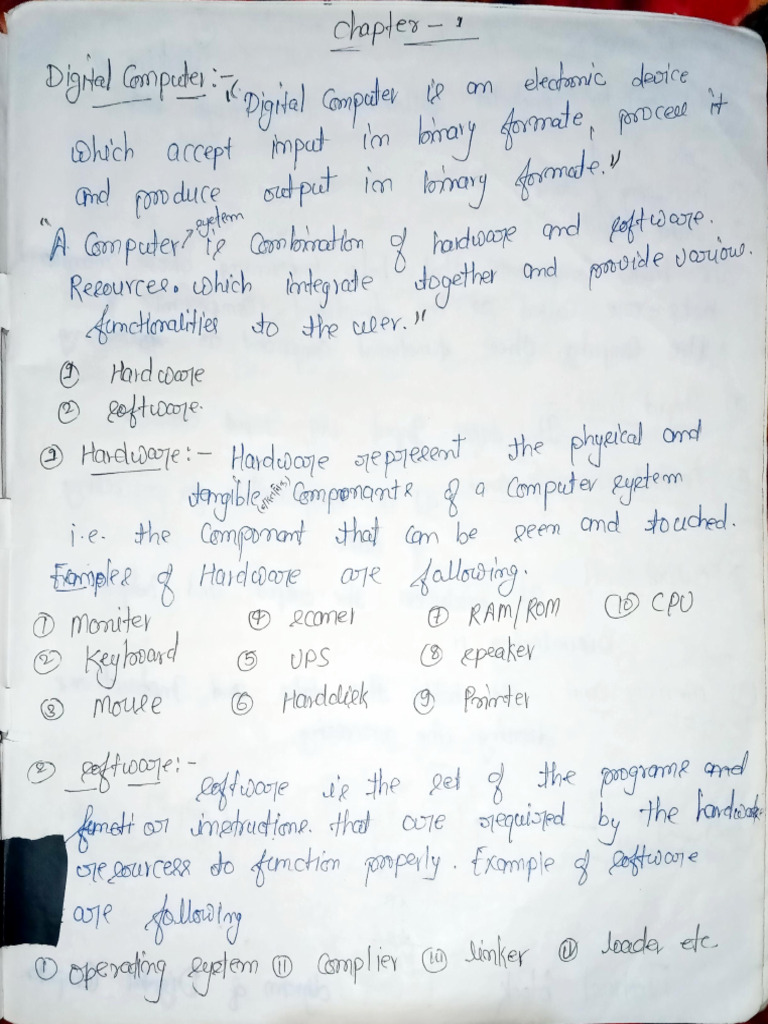 Chapter - 1
Digital Computer :- "Digital Computer is an electronic device
which accept input in binary formate, process it
and produce output in binary formate."
"A Computer system is Combination of hardware and software.
Resources. which integrate together and provide various.
functionalities to the user."
① Hardware
② software.
① Hardware :- Hardware represent the physical and
tangible Componants of a Computer system
i.e. the Componant that can be seen and touched.
Examples of Hardware are fallowing.
① Moniter ④ scaner ⑦ RAM/ROM ⑩ CPU
② Keyboard ⑤ UPS ⑧ speaker
③ Mouse ⑥ Harddisk ⑨ Printer
② software :- software is the set of the programs and
or instructions. that are required by the hardware
resourcess to function properly. Example of software
are fallowing
① operating system ⑪ Complier ⑪⑪ linker ⑭ loader etc.